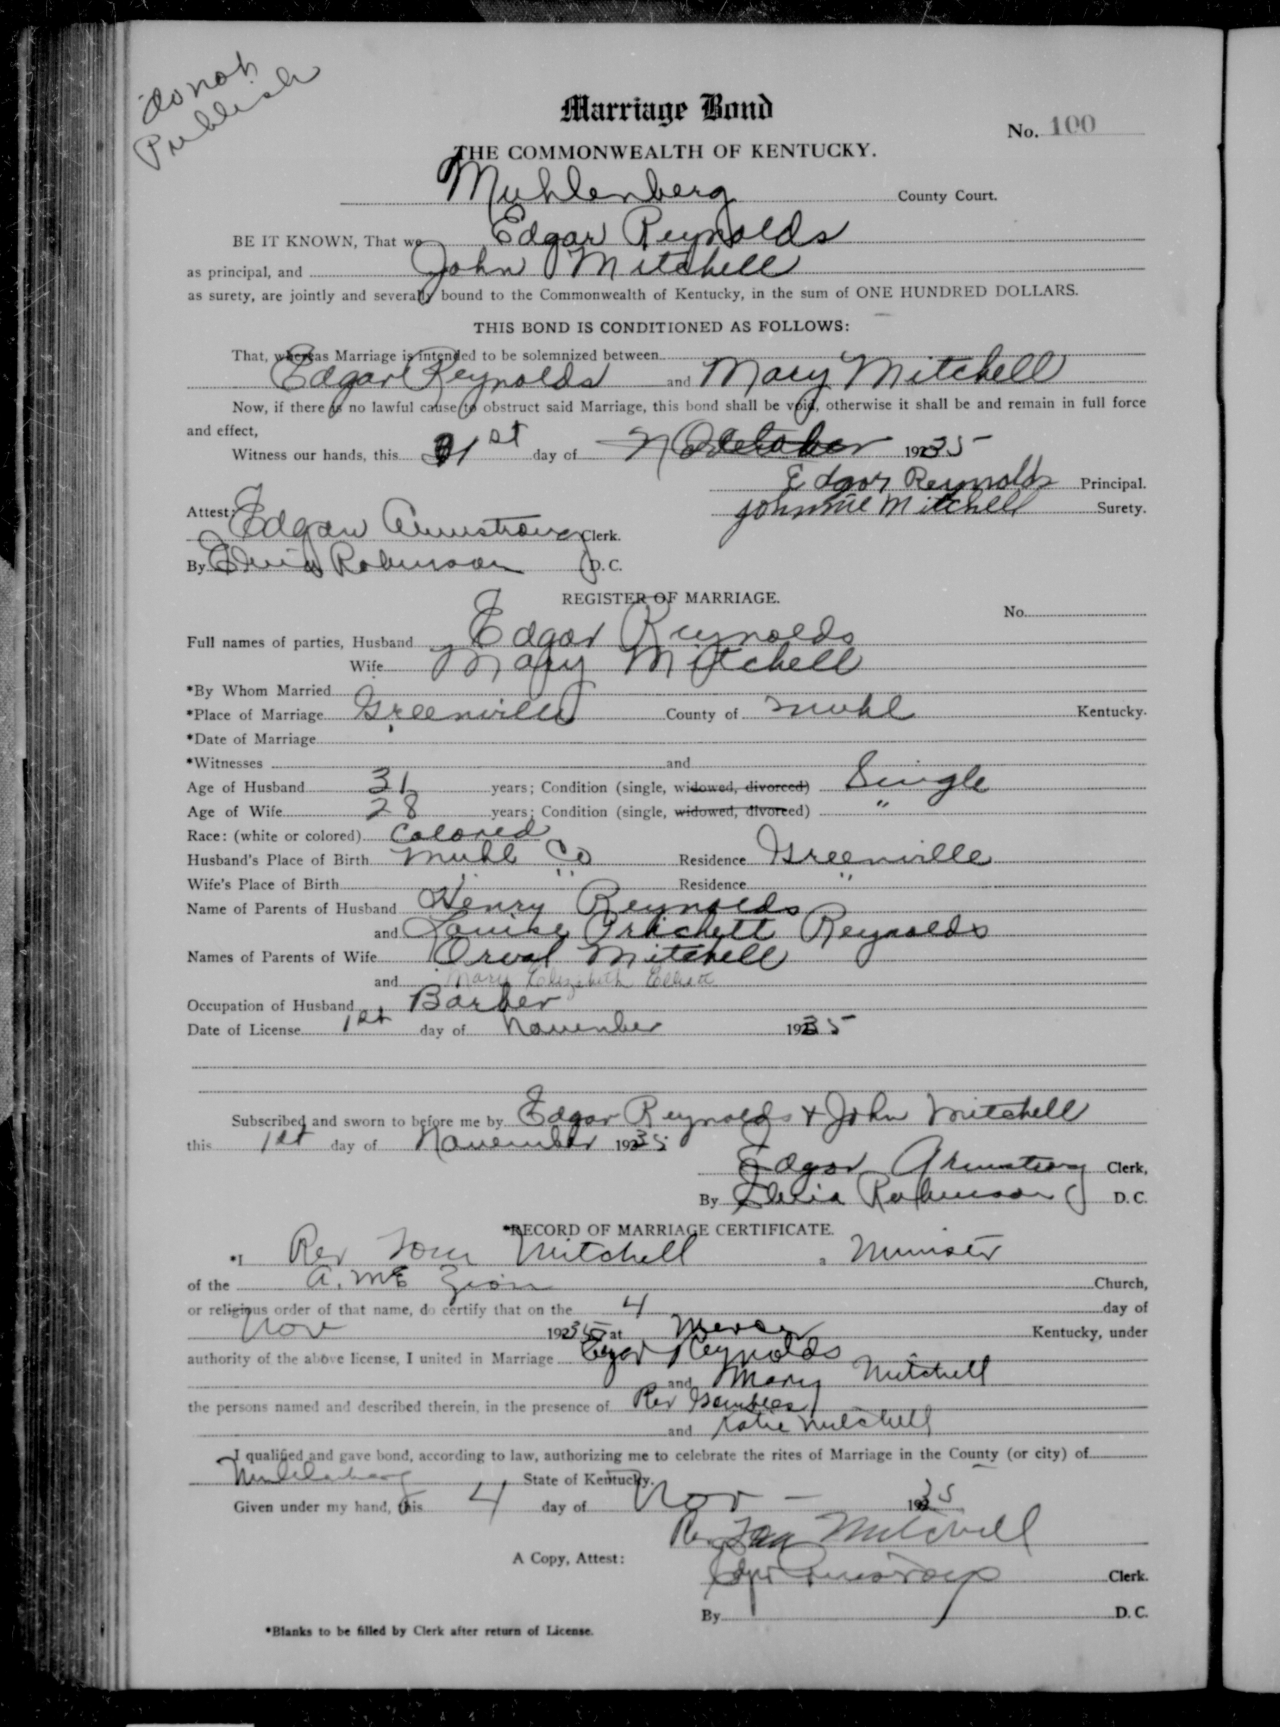 do not
Publish
Marriage Bond
No. 100
THE COMMONWEALTH OF KENTUCKY.
Muhlenberg County Court.
BE IT KNOWN, That we Edgar Reynolds
as principal, and John Mitchell
as surety, are jointly and severally bound to the Commonwealth of Kentucky, in the sum of ONE HUNDRED DOLLARS.
THIS BOND IS CONDITIONED AS FOLLOWS:
That, whereas Marriage is intended to be solemnized between
Edgar Reynolds and Mary Mitchell
Now, if there is no lawful cause to obstruct said Marriage, this bond shall be void, otherwise it shall be and remain in full force
and effect,
Witness our hands, this 1st day of October 1935
Edgar Reynolds Principal.
Johnnie Mitchell Surety.
Attest: Edgar Armstrong Clerk.
By Robinson D. C.
REGISTER OF MARRIAGE.
No.
Full names of parties, Husband Edgar Reynolds
Wife Mary Mitchell
*By Whom Married
*Place of Marriage Greenville County of Muhl Kentucky.
*Date of Marriage
*Witnesses and
Age of Husband 31 years; Condition (single, widowed, divorced) Single
Age of Wife 28 years; Condition (single, widowed, divorced) "
Race: (white or colored) Colored
Husband's Place of Birth Muhl Co Residence Greenville
Wife's Place of Birth " " Residence "
Name of Parents of Husband Henry Reynolds
and Louise Prachett Reynolds
Names of Parents of Wife Orval Mitchell
and Mary Elizabeth Elliott
Occupation of Husband Barber
Date of License 1st day of November 1935
Subscribed and sworn to before me by Edgar Reynolds & John Mitchell
this 1st day of November 1935
Edgar Armstrong Clerk,
By Robinson D. C.
*RECORD OF MARRIAGE CERTIFICATE.
*I Rev Tom Mitchell, a Minister
of the A. M E Zion Church,
or religious order of that name, do certify that on the 4 day of
Nov 1935 at Mercer Kentucky, under
authority of the above license, I united in Marriage Egar Reynolds
and Mary Mitchell
the persons named and described therein, in the presence of Rev
and Katie Mitchell
I qualified and gave bond, according to law, authorizing me to celebrate the rites of Marriage in the County (or city) of
Muhlenberg State of Kentucky.
Given under my hand, this 4 day of Nov - 1935
Rev Tom Mitchell
A Copy, Attest:
Edgar Armstrong Clerk.
By D. C.
*Blanks to be filled by Clerk after return of License.